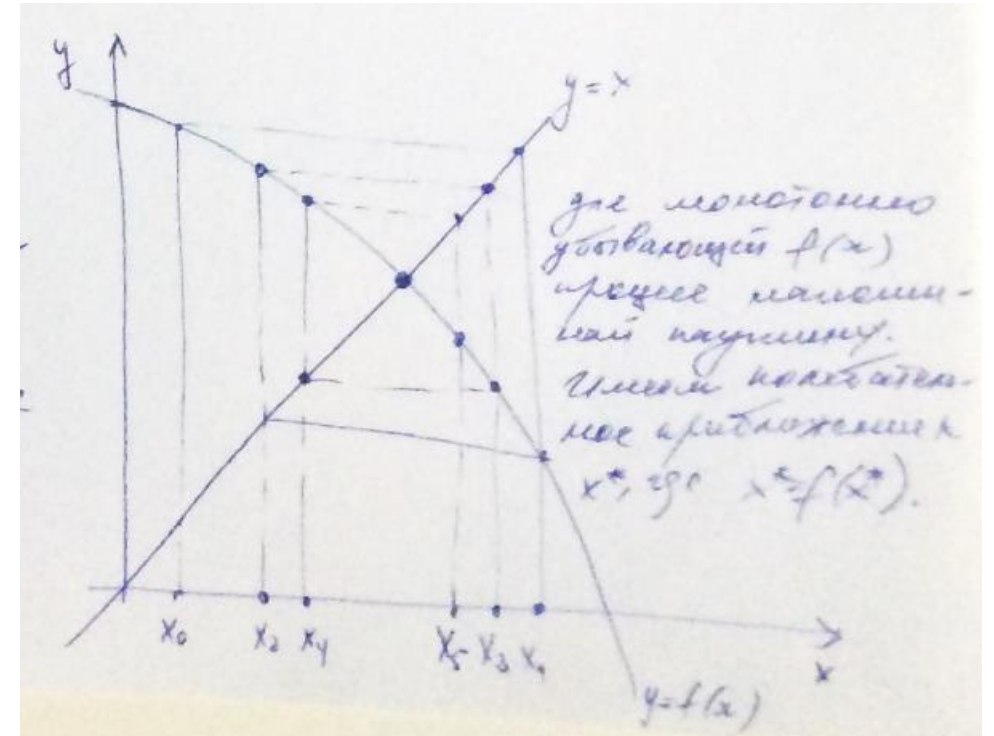 y
y = x
для монотонно
убывающей f(x)
процес напомин-
ает паутину.
Имеем колебатель-
ное приближение к
x*, где x*=f(x*).
x₀ x₂ x₄ x₅ x₃ x₁
x
y=f(x)